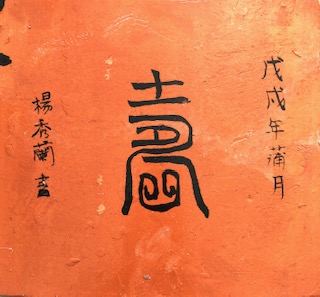 戊戌年蒲月
壽
楊秀蘭書